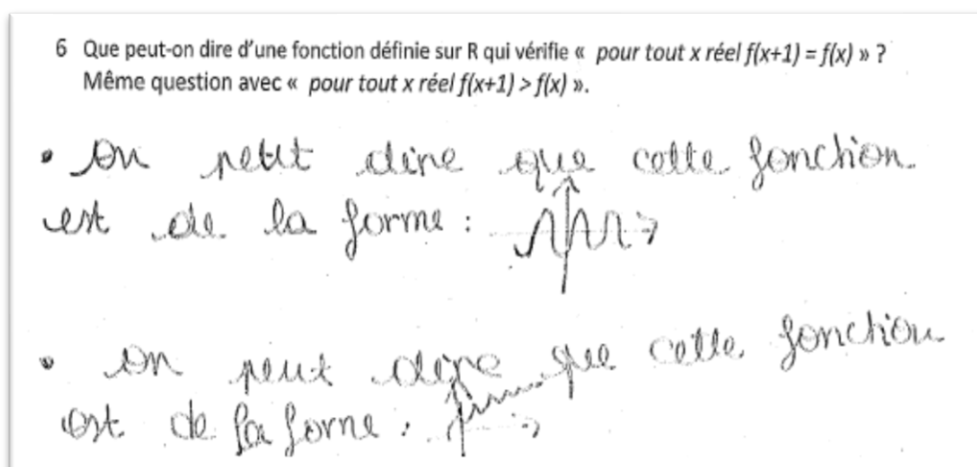 6 Que peut-on dire d'une fonction définie sur R qui vérifie « pour tout x réel f(x+1) = f(x) » ?
Même question avec « pour tout x réel f(x+1) > f(x) ».
• On peut dire que cette fonction
est de la forme :
• On peut dire que cette fonction
est de la forme :